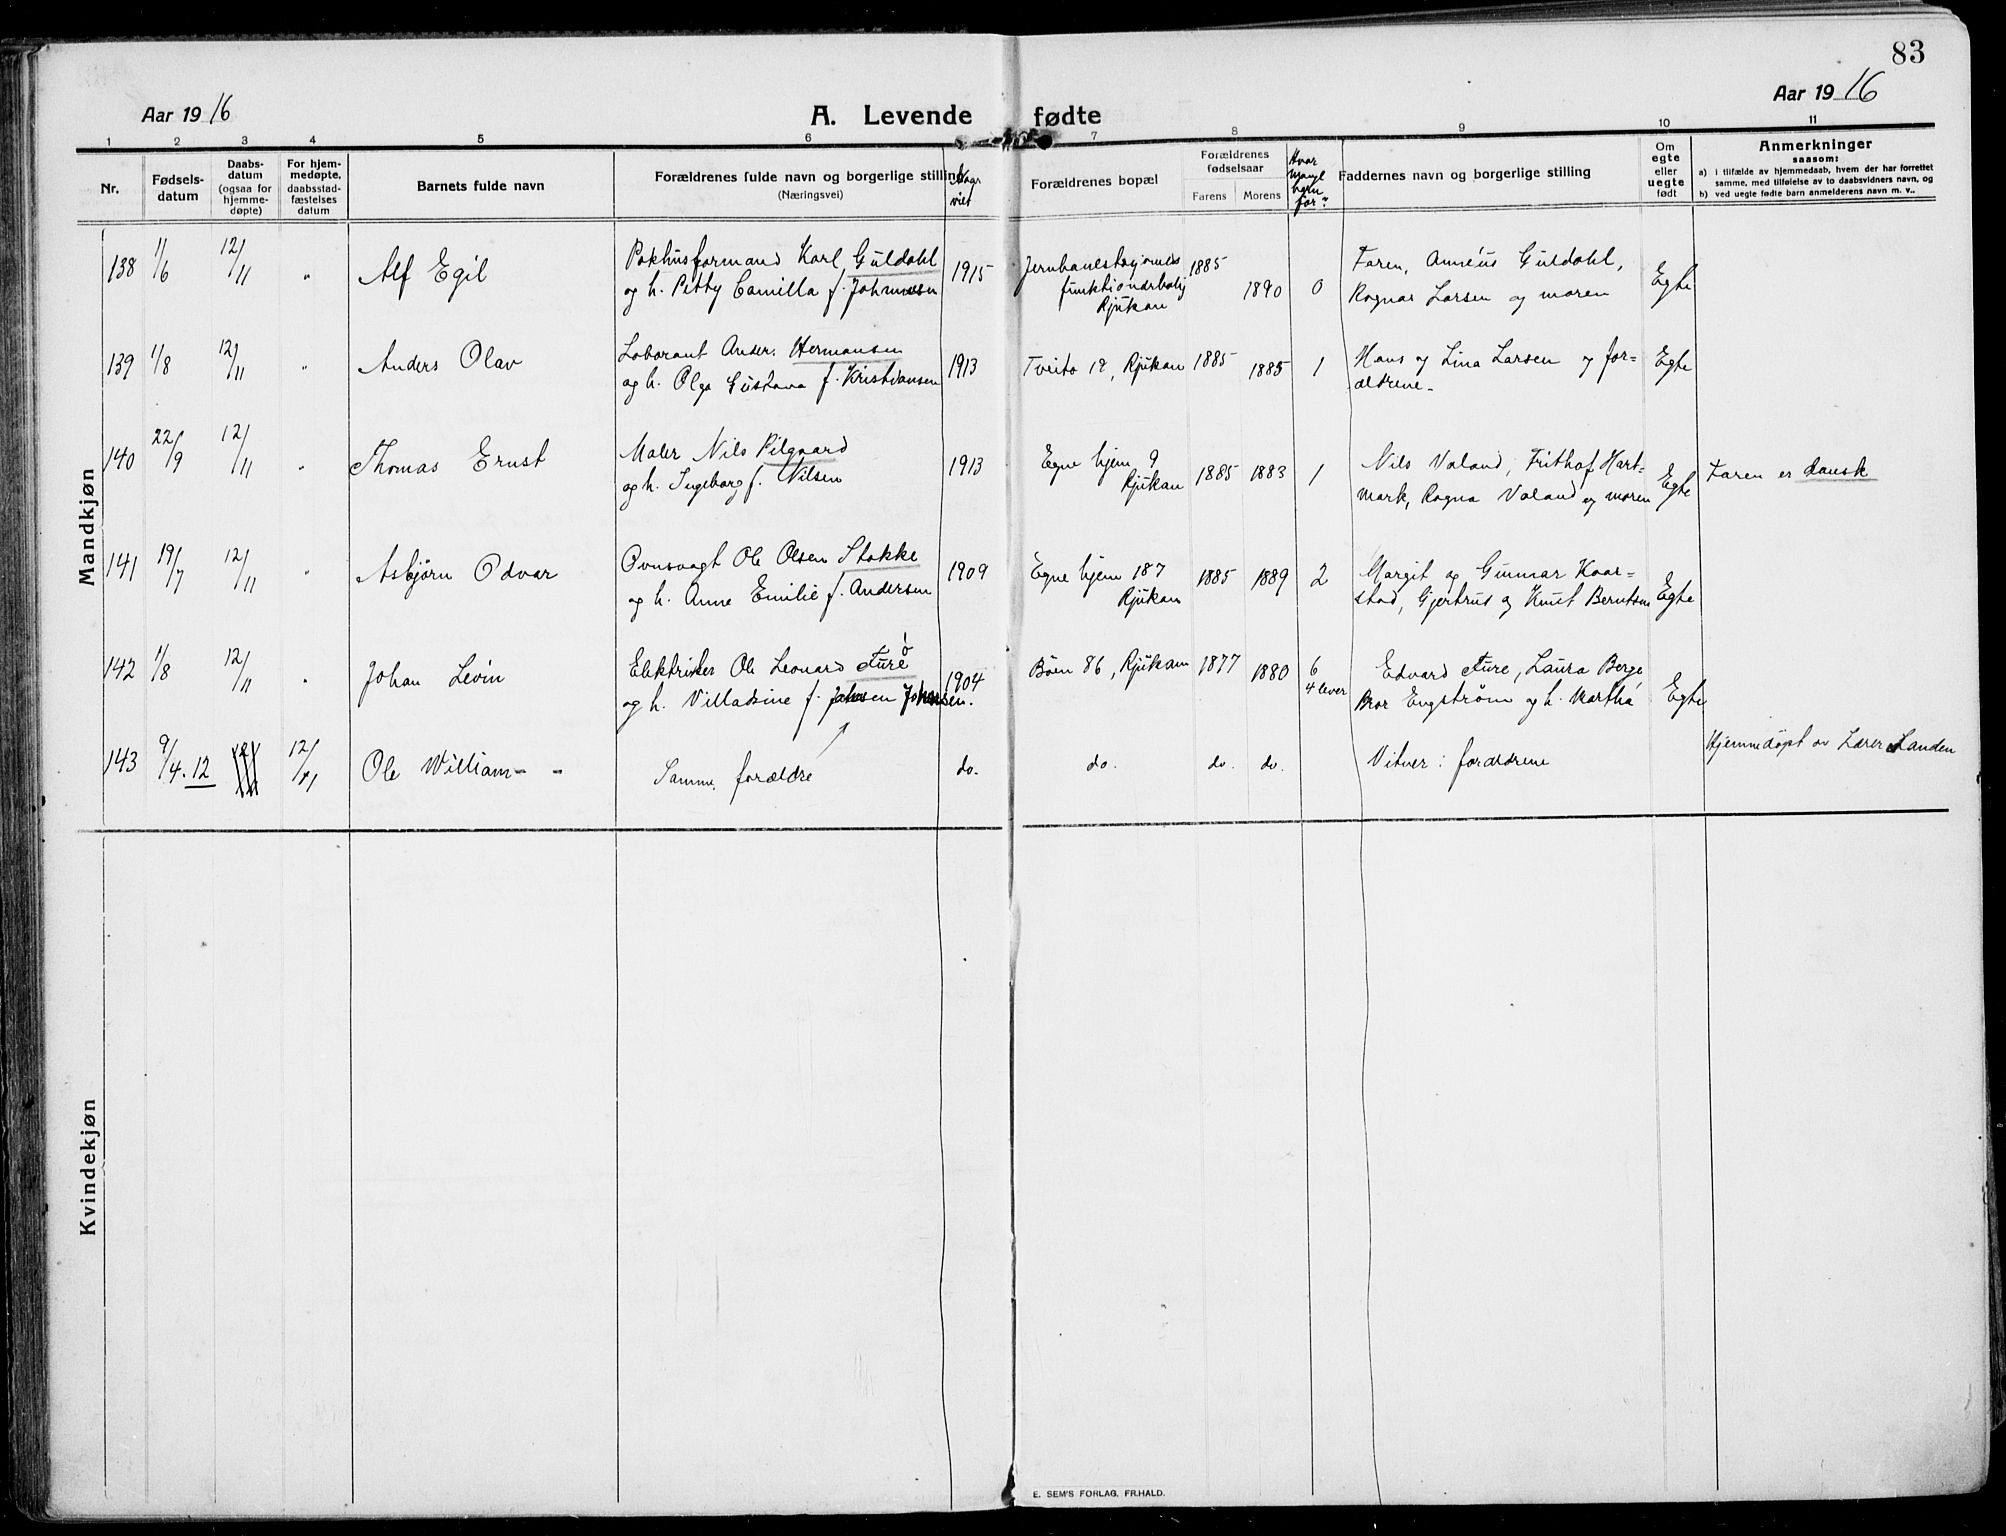 83
Aar 1916
A. Levende fødte
Aar 1916
1 2 3 4 5 6 7 8 9 10 11
Nr.
Fødsels-
datum
Daabs-
datum
(ogsaa for
hjemme-
døpte)
For hjem-
medøpte,
daabsstad-
fæstelses
datum
Barnets fulde navn
Forældrenes fulde navn og borgerlige stilling
(Næringsvei)
Naar
viet
Forældrenes bopæl
Forældrenes
fødselsaar
Farens Morens
Hvor
mange
barn
før?
Faddernes navn og borgerlige stilling
Om
egte
eller
uegte
født
Anmerkninger
saasom:
a) i tilfælde av hjemmedaab, hvem der har forrettet
samme, med tilføielse av to daabsvidners navn, og
b) ved uegte fødte barn anmelderens navn m. v..
Mandkjøn
138 1/6 12/11 " Alf Egil
Pakhusformand Karl Guldahl
og h. Petty Camilla f. Johnsen
1915
Jernbanestasjonens
funktionærbolig
Rjukan
1885 1890 0
Faren, Anneus Guldahl,
Ragnar Larsen og moren
Egte
139 1/8 12/11 " Anders Olav
Laborant Anders Hermansen
og h. Olga Gustava f. Kristiansen
1913 Tveito 12, Rjukan 1885 1885 1
Hans og Lina Larsen og for-
ældrene.
Egte
140 22/9 12/11 " Thomas Ernst
Maler Nils Pilgaard
og h. Ingeborg f. Nilsen
1913
Egne hjem 9
Rjukan
1885 1883 1
Nils Valand, Frithof Hart-
mark, Ragna Valand og moren
Egte Faren er dansk
141 19/7 12/11 " Asbjørn Odvar
Ovnsvagt Ole Olsen Stokke
og h. Anne Emilie f. Andersen
1909
Egne hjem 187
Rjukan
1885 1889 2
Margit og Gunnar Kaar-
stad, Gjertrud og Knut Berntsen
Egte
142 1/8 12/11 " Johan Levin
Elektriker Ole Leonard Fure
og h. Villadsine f. Johansen
1904 Bøen 86, Rjukan 1877 1880
6
4 lever
Edvard Fure, Laura Berge,
Bror Engstrøm og h. Martha
Egte
143 9/4. 12 12/11 Ole William - -
Samme forældre
do. do. do. do.
Vitner: forældrene
Hjemmedøpt av Lærer Landen
Kvindekjøn
E. SEM'S FORLAG, FR.HALD.